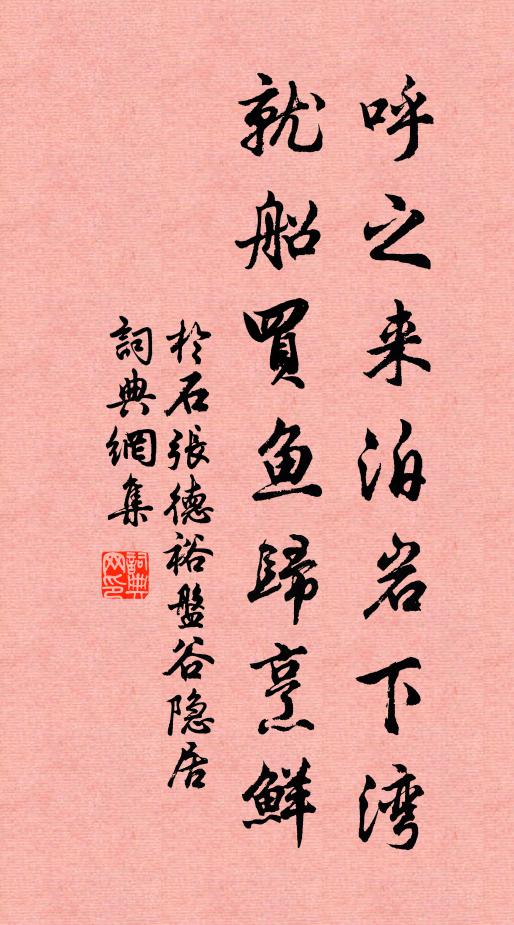 呼之来泊岩下湾
就船買鱼歸烹鮮
於石張德裕盤谷隐居
詞典網集
詞典网印